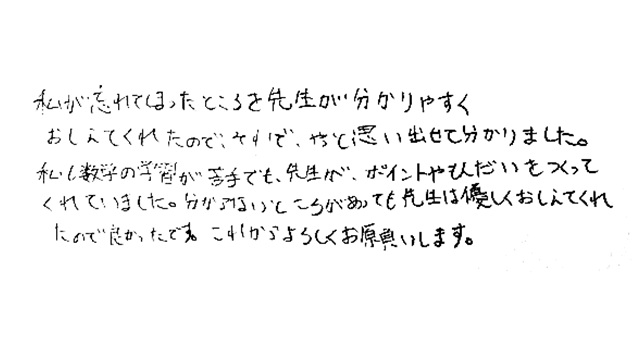 私が忘れてしまったところを先生が分かりやすく
おしえてくれたので、それで、やっと思い出せて分かりました。
私も数学の学習が苦手でも、先生が、ポイントやもんだいをつくって
くれていました。分からないところがあっても先生は優しくおしえてくれ
たので良かったです。これからよろしくお願いします。